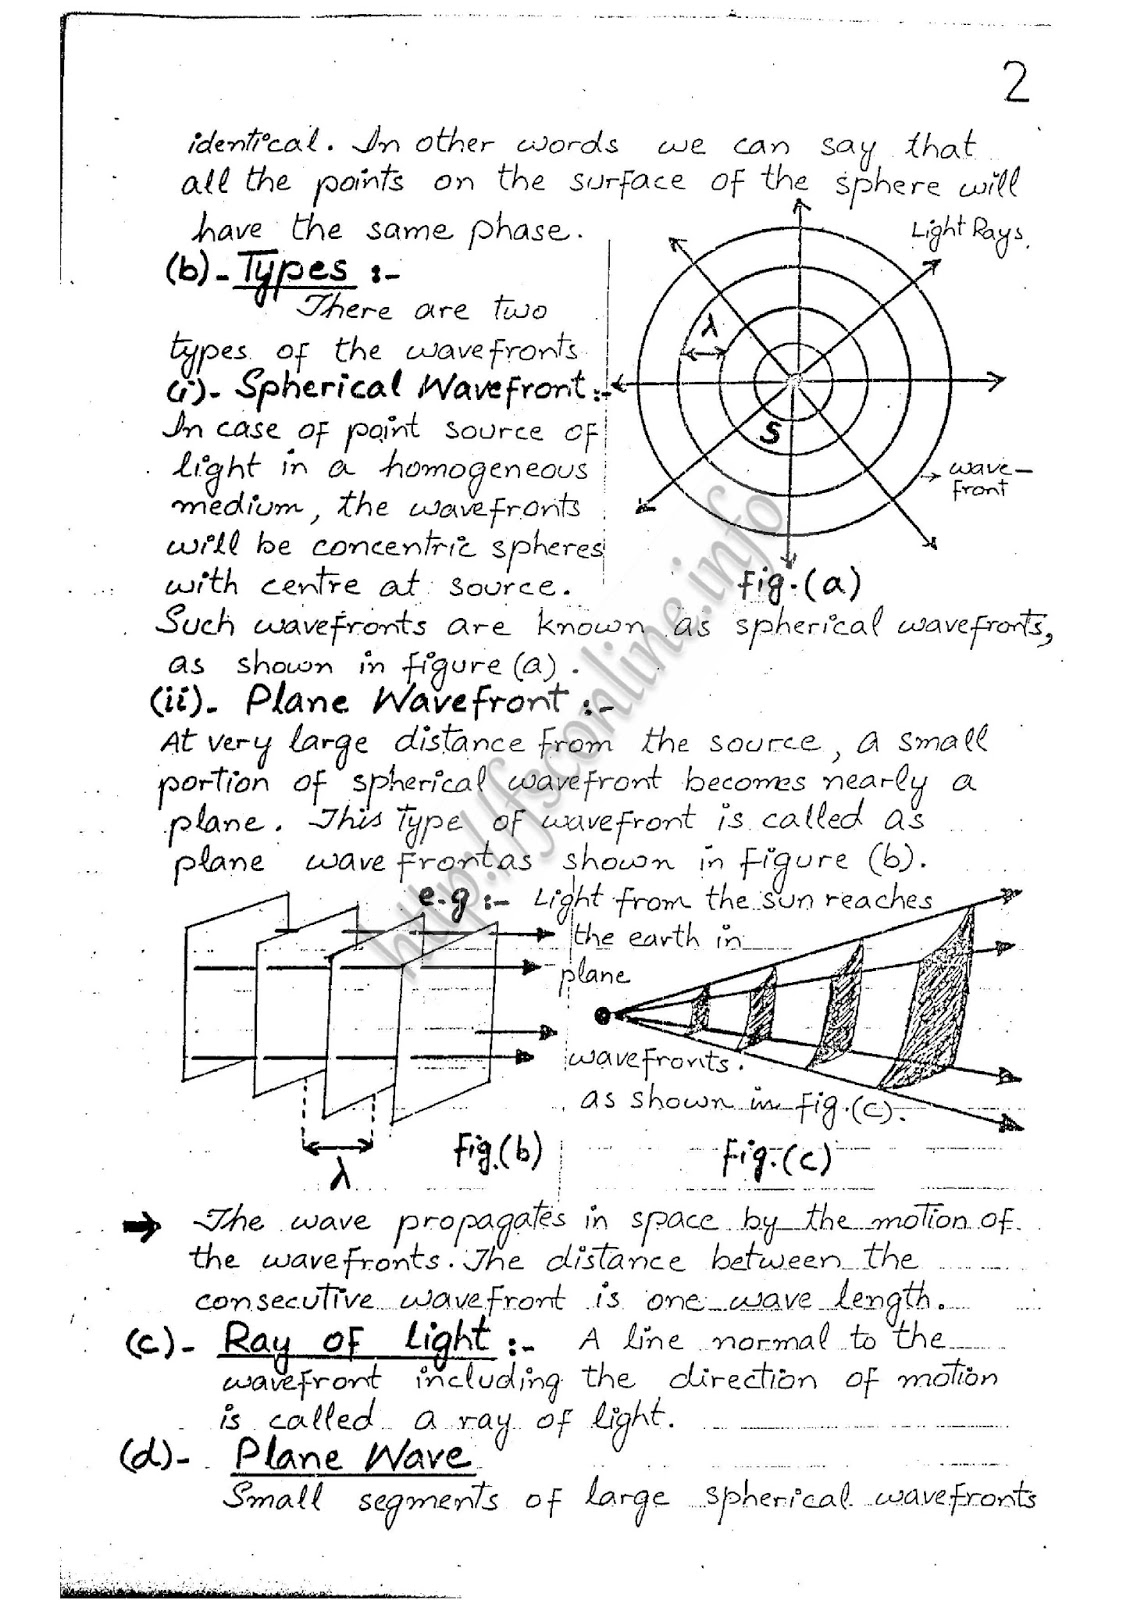 2
identical. In other words we can say that
all the points on the surface of the sphere will
have the same phase.
Light Rays.
(b)- Types :-
There are two
types of the wavefronts
λ
(i)- Spherical Wavefront:-
In case of point source of
S
light in a homogeneous
wave-
front
medium, the wavefronts
will be concentric spheres
with centre at source.
Fig.(a)
Such wavefronts are known as spherical wavefronts,
as shown in figure (a).
(ii)- Plane Wavefront :-
At very large distance from the source, a small
portion of spherical wavefront becomes nearly a
plane. This Type of wavefront is called as
plane wave front as shown in figure (b).
e.g :- Light from the sun reaches
the earth in
plane
wavefronts.
as shown in fig.(c).
Fig.(b)
λ
Fig.(c)
→ The wave propagates in space by the motion of
the wavefronts. The distance between the
consecutive wavefront is one wave length.
(c)- Ray of Light :- A line normal to the
wavefront including the direction of motion
is called a ray of light.
(d)- Plane Wave
Small segments of large spherical wavefronts
http://fsconline.info